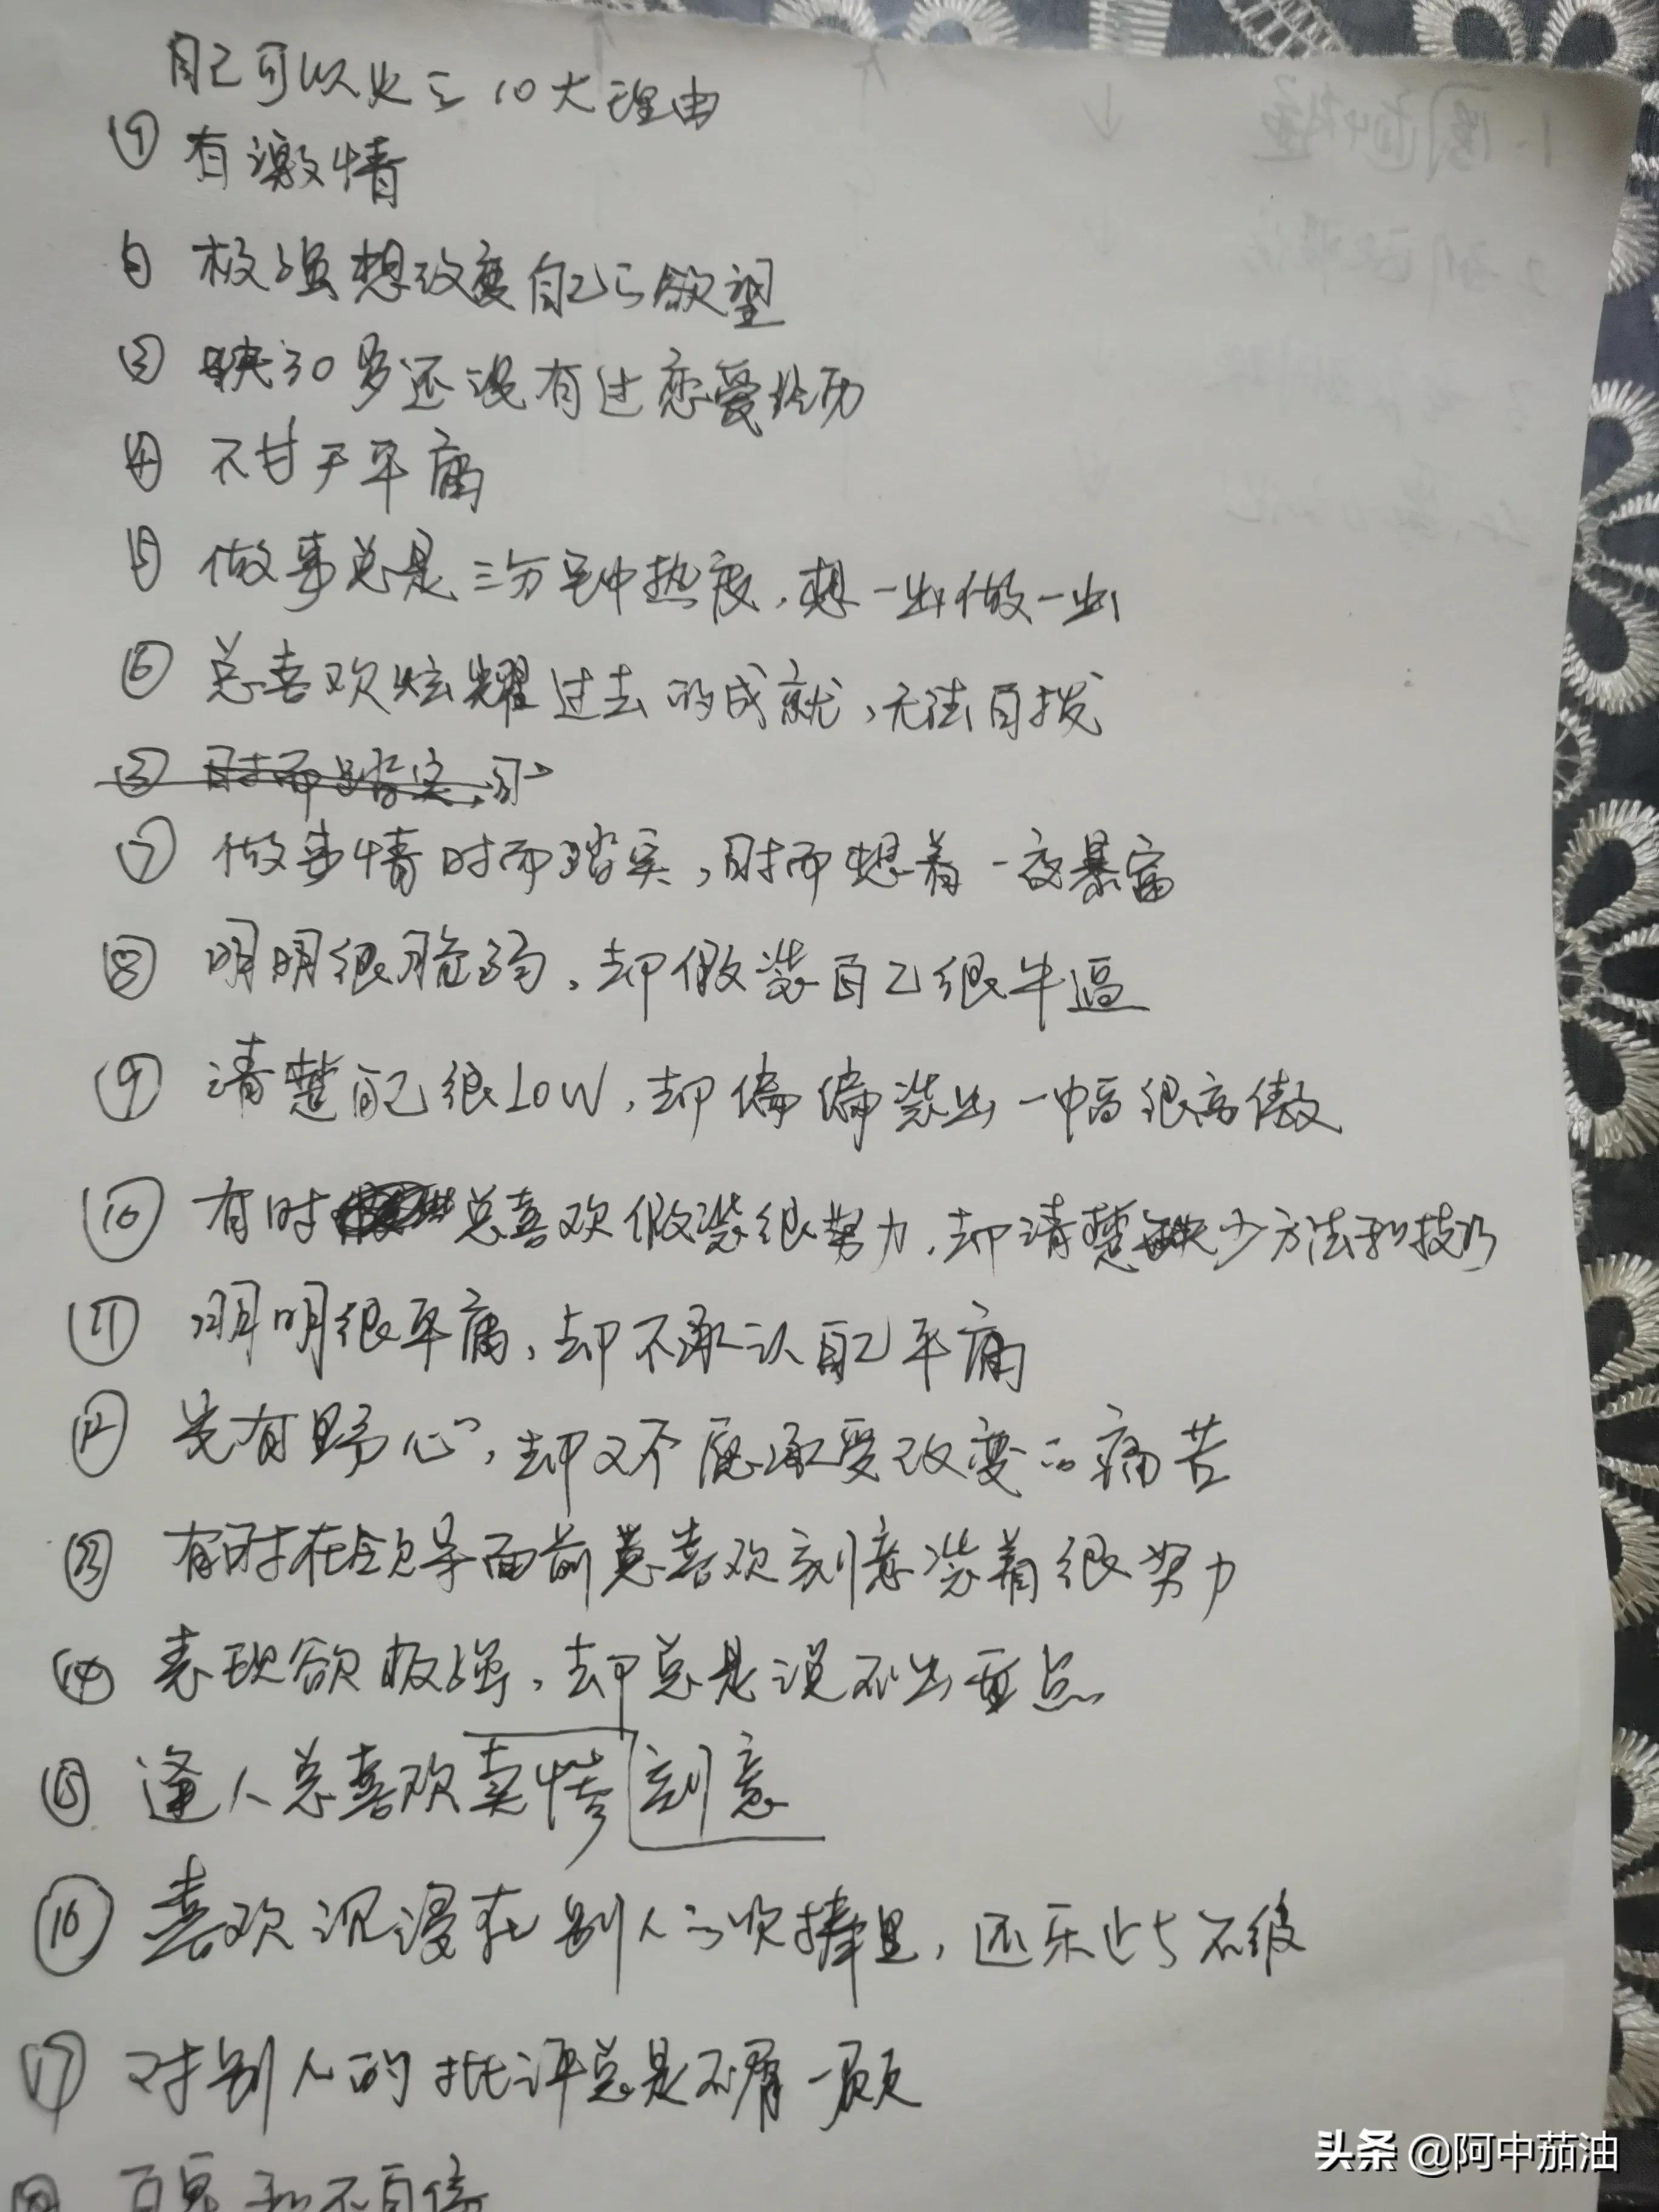 自己可以火的10大理由
① 有激情
② 极强想改变自己的欲望
③ 快30岁还没有过恋爱经历
④ 不甘于平庸
⑤ 做事总是三分钟热度，想一出做一出
⑥ 总喜欢炫耀过去的成就，无法自拔
⑦ 做事情时而踏实，时而想着一夜暴富
⑧ 明明很脆弱，却假装自己很牛逼
⑨ 清楚自己很LOW，却偏偏装出一幅很高傲
⑩ 有时总喜欢假装很努力，却清楚缺少方法和技巧
⑪ 明明很平庸，却不承认自己平庸
⑫ 光有野心，却又不愿承受改变的痛苦
⑬ 有时在领导面前总喜欢刻意装着很努力
⑭ 表现欲极强，却总是说不出重点
⑮ 逢人总喜欢卖惨刻意
⑯ 喜欢沉浸在别人的吹捧里，还乐此不疲
⑰ 对别人的批评总是不屑一顾
头条 @阿中茄油